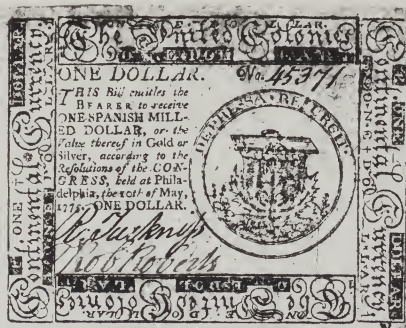 The United Colonies
ONE DOLLAR. No. 45371
THIS Bill entitles the
BEARER to receive
ONE SPANISH MILL-
ED DOLLAR, or the
Value thereof in Gold or
Silver, according to the
Resolutions of the CON-
GRESS, held at Phila-
delphia, the 10th of May,
1775. ONE DOLLAR.
DEPRESSA RESURGIT.
Rob Roberts
The United Colonies
Continental Currency
Continental Currency